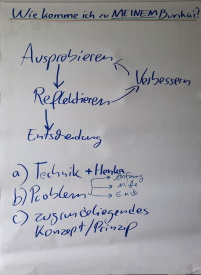 Wie komme ich zu MEINEM Bunkai?
Ausprobieren
Verbessern
Reflektieren
Entscheidung
a) Technik + Henka
b) Problem
Anfang
Mitte
Ende
c) zugrundeliegendes
Konzept/Prinzip